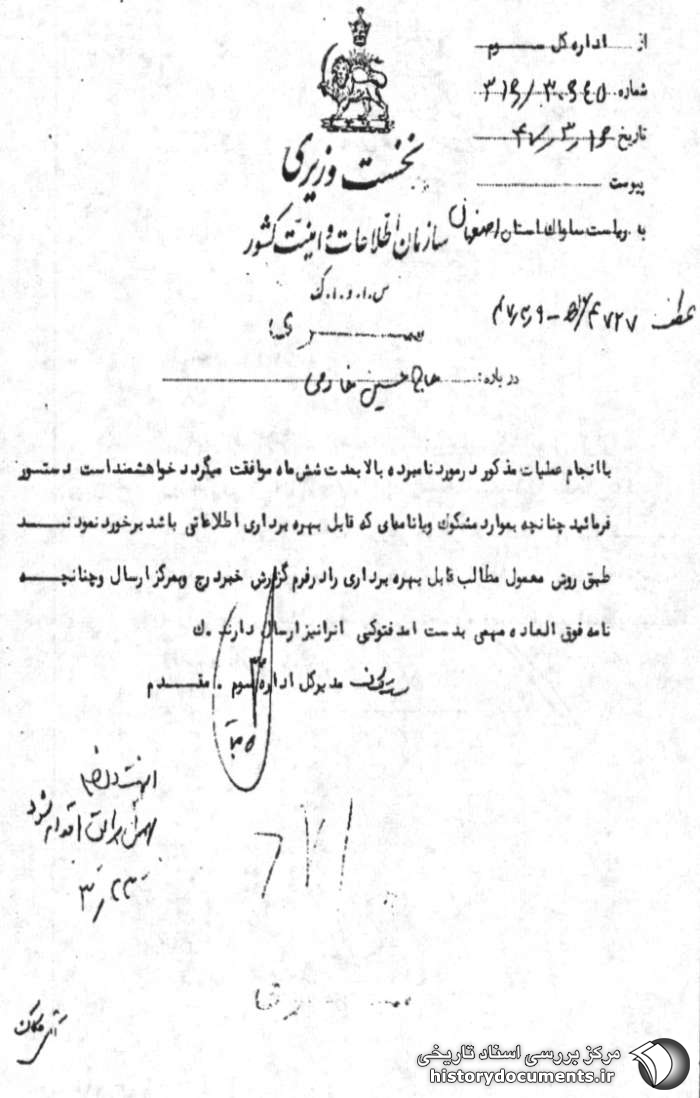 از اداره کل سوم
شماره ۳۱۶/۳۰۶۴۵
تاریخ ۴۷/۳/۱۶
پیوست
نخست وزیری
به ریاست ساواک استان اصفهان
سازمان اطلاعات و امنیت کشور
س.ا.و.ا.ک
عطف ۴۷۲۷/
سری
در باره: حاج حسین خادمی
با انجام عملیات مذکور در مورد نامبرده بالا بمدت شش ماه موافقت میگردد خواهشمند است دستور
فرمائید چنانچه بموارد مشکوک ویا نامه‌ای که قابل بهره برداری اطلاعاتی باشد برخورد نمودنــد
طبق روش معمول مطالب قابل بهره برداری را در فرم گزارش خبر درج وبمرکز ارسال وچنانچــه
نامه فوق العاده مهمی بدست امد فتوکپی انرا نیز ارسال دارند .ک
مدیر کل اداره سوم . مقــدم
اقدام شود
۳/۲۳
مرکز بررسی اسناد تاریخی
historydocuments.ir